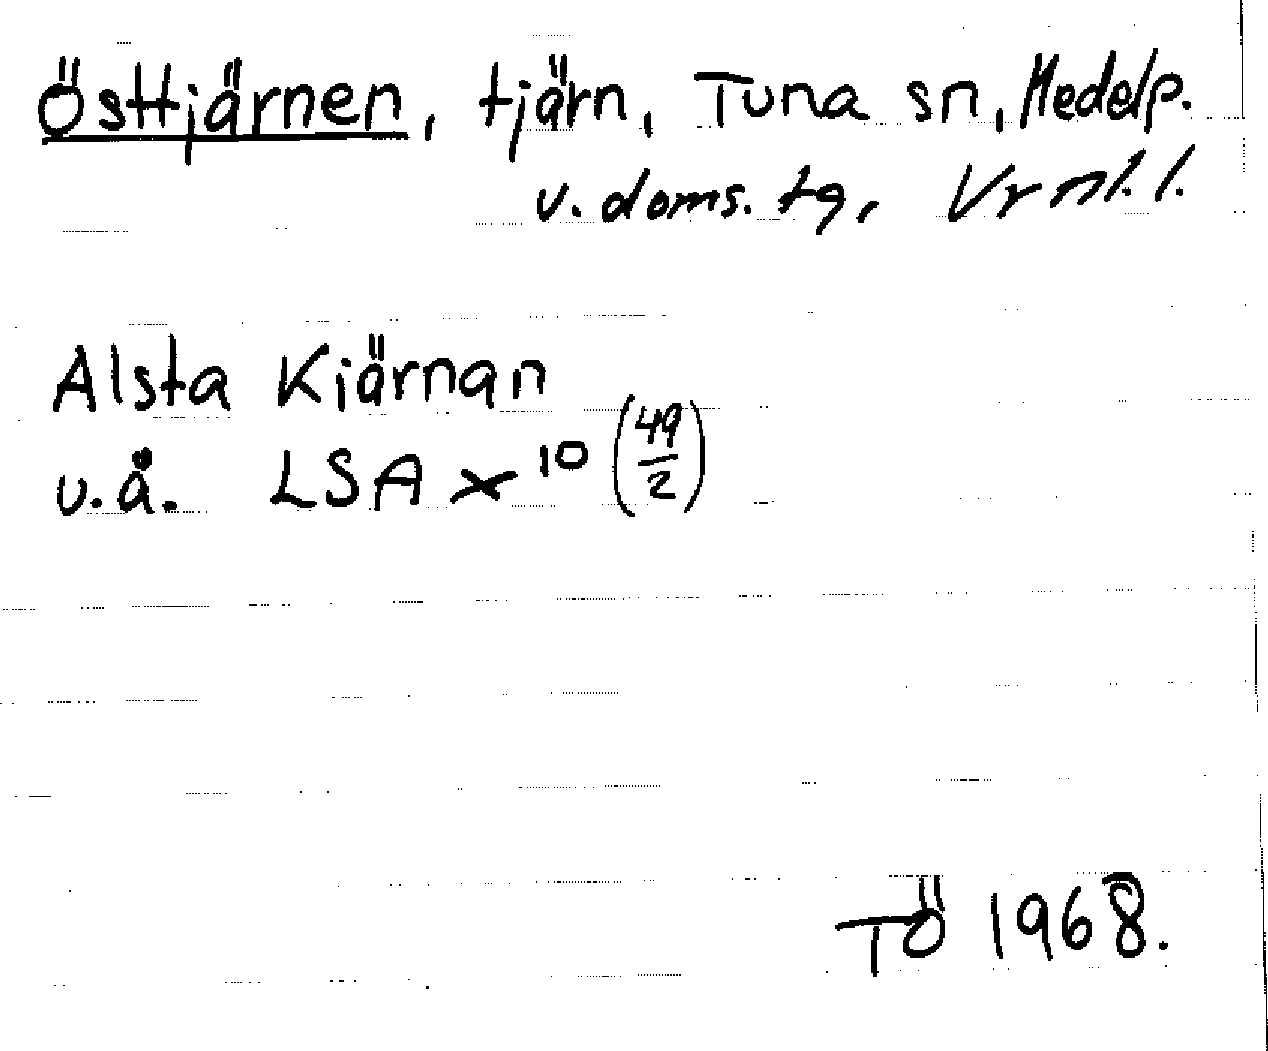 Östtjärnen, tjärn, Tuna sn, Medelp.
v. doms. tg, Vrnl. l.
Alsta Kiärnan
u.å. LSA x 10 (49/2)
TÖ 1968.